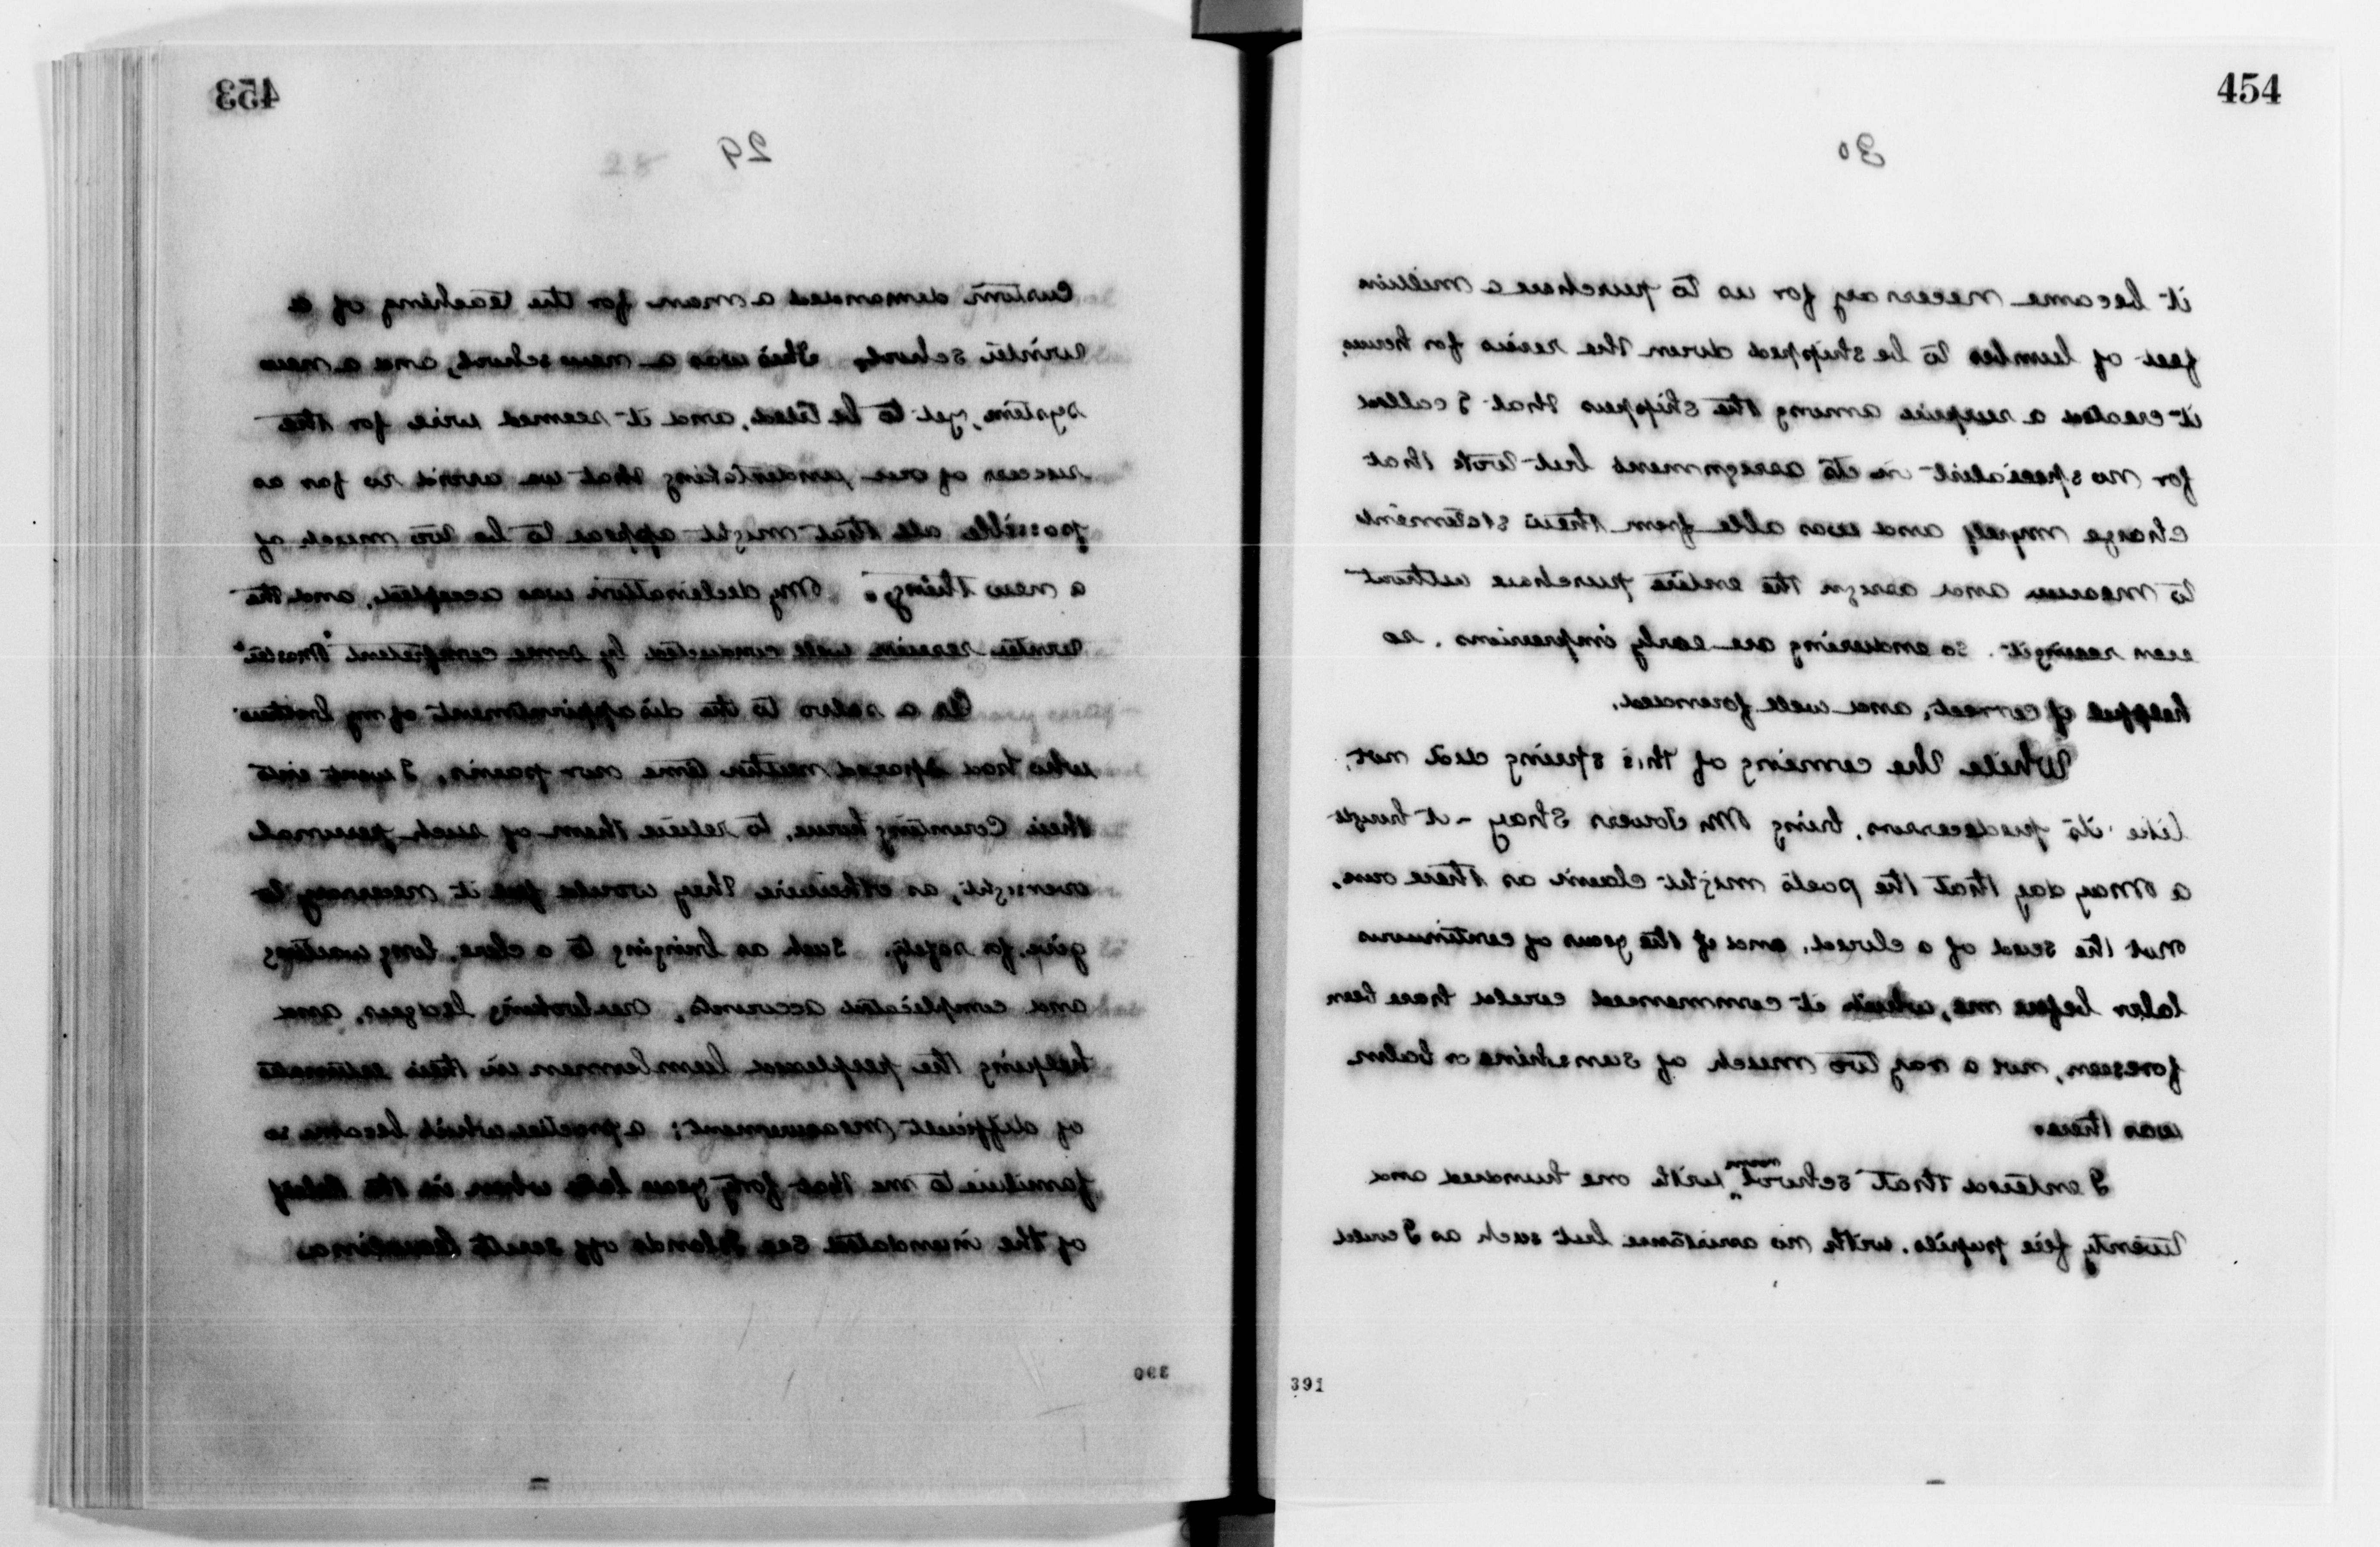 453
29
28
Custom demanded a man for the teaching of a
winter school. This was a new school, and a new
system, yet to be tried, and it seemed wise for the
success of our undertaking that we avoid so far as
possible all that might appear to be too much of
a new thing. My declination was accepted, and the
winter session well conducted by some competent "Master"
As a salvo to the disappointment of my brothers
who had spared neither time nor pains, I went into
their Counting house, to relieve them of such personal
oversight, as otherwise they would feel it necessary to
give, for safety. Such as bringing to a close, long waiting
and complicated accounts, overlooking ledgers, and
helping the perplexed lumbermen in their estimates
of difficult measurement; a practice which became so
familiar to me that forty years later when in the relief
of the inundated Sea Islands off South Carolina
390
454
30
it became necessary for us to purchase a million
feet of lumber to be shipped down the rivers for homes,
it created a surprise among the shippers that I called
for no specialist in its assignment but took that
charge myself and was able from their statements
to measure and assign the entire purchase without
even seeing it. So enduring are early impressions, so
helpful if correct, and well formed.
While the coming of this spring did not,
like its predecessors, bring Mr Jowers Shay - it brought
a May day that the poets might claim as their own,
not the scud of a cloud, and if the years of continuous
labor before me, which it commenced could have been
foreseen, not a ray too much of sunshine or balm
was there.
I entered that school room with one hundred and
twenty five pupils, with no assistance but such as I could
391